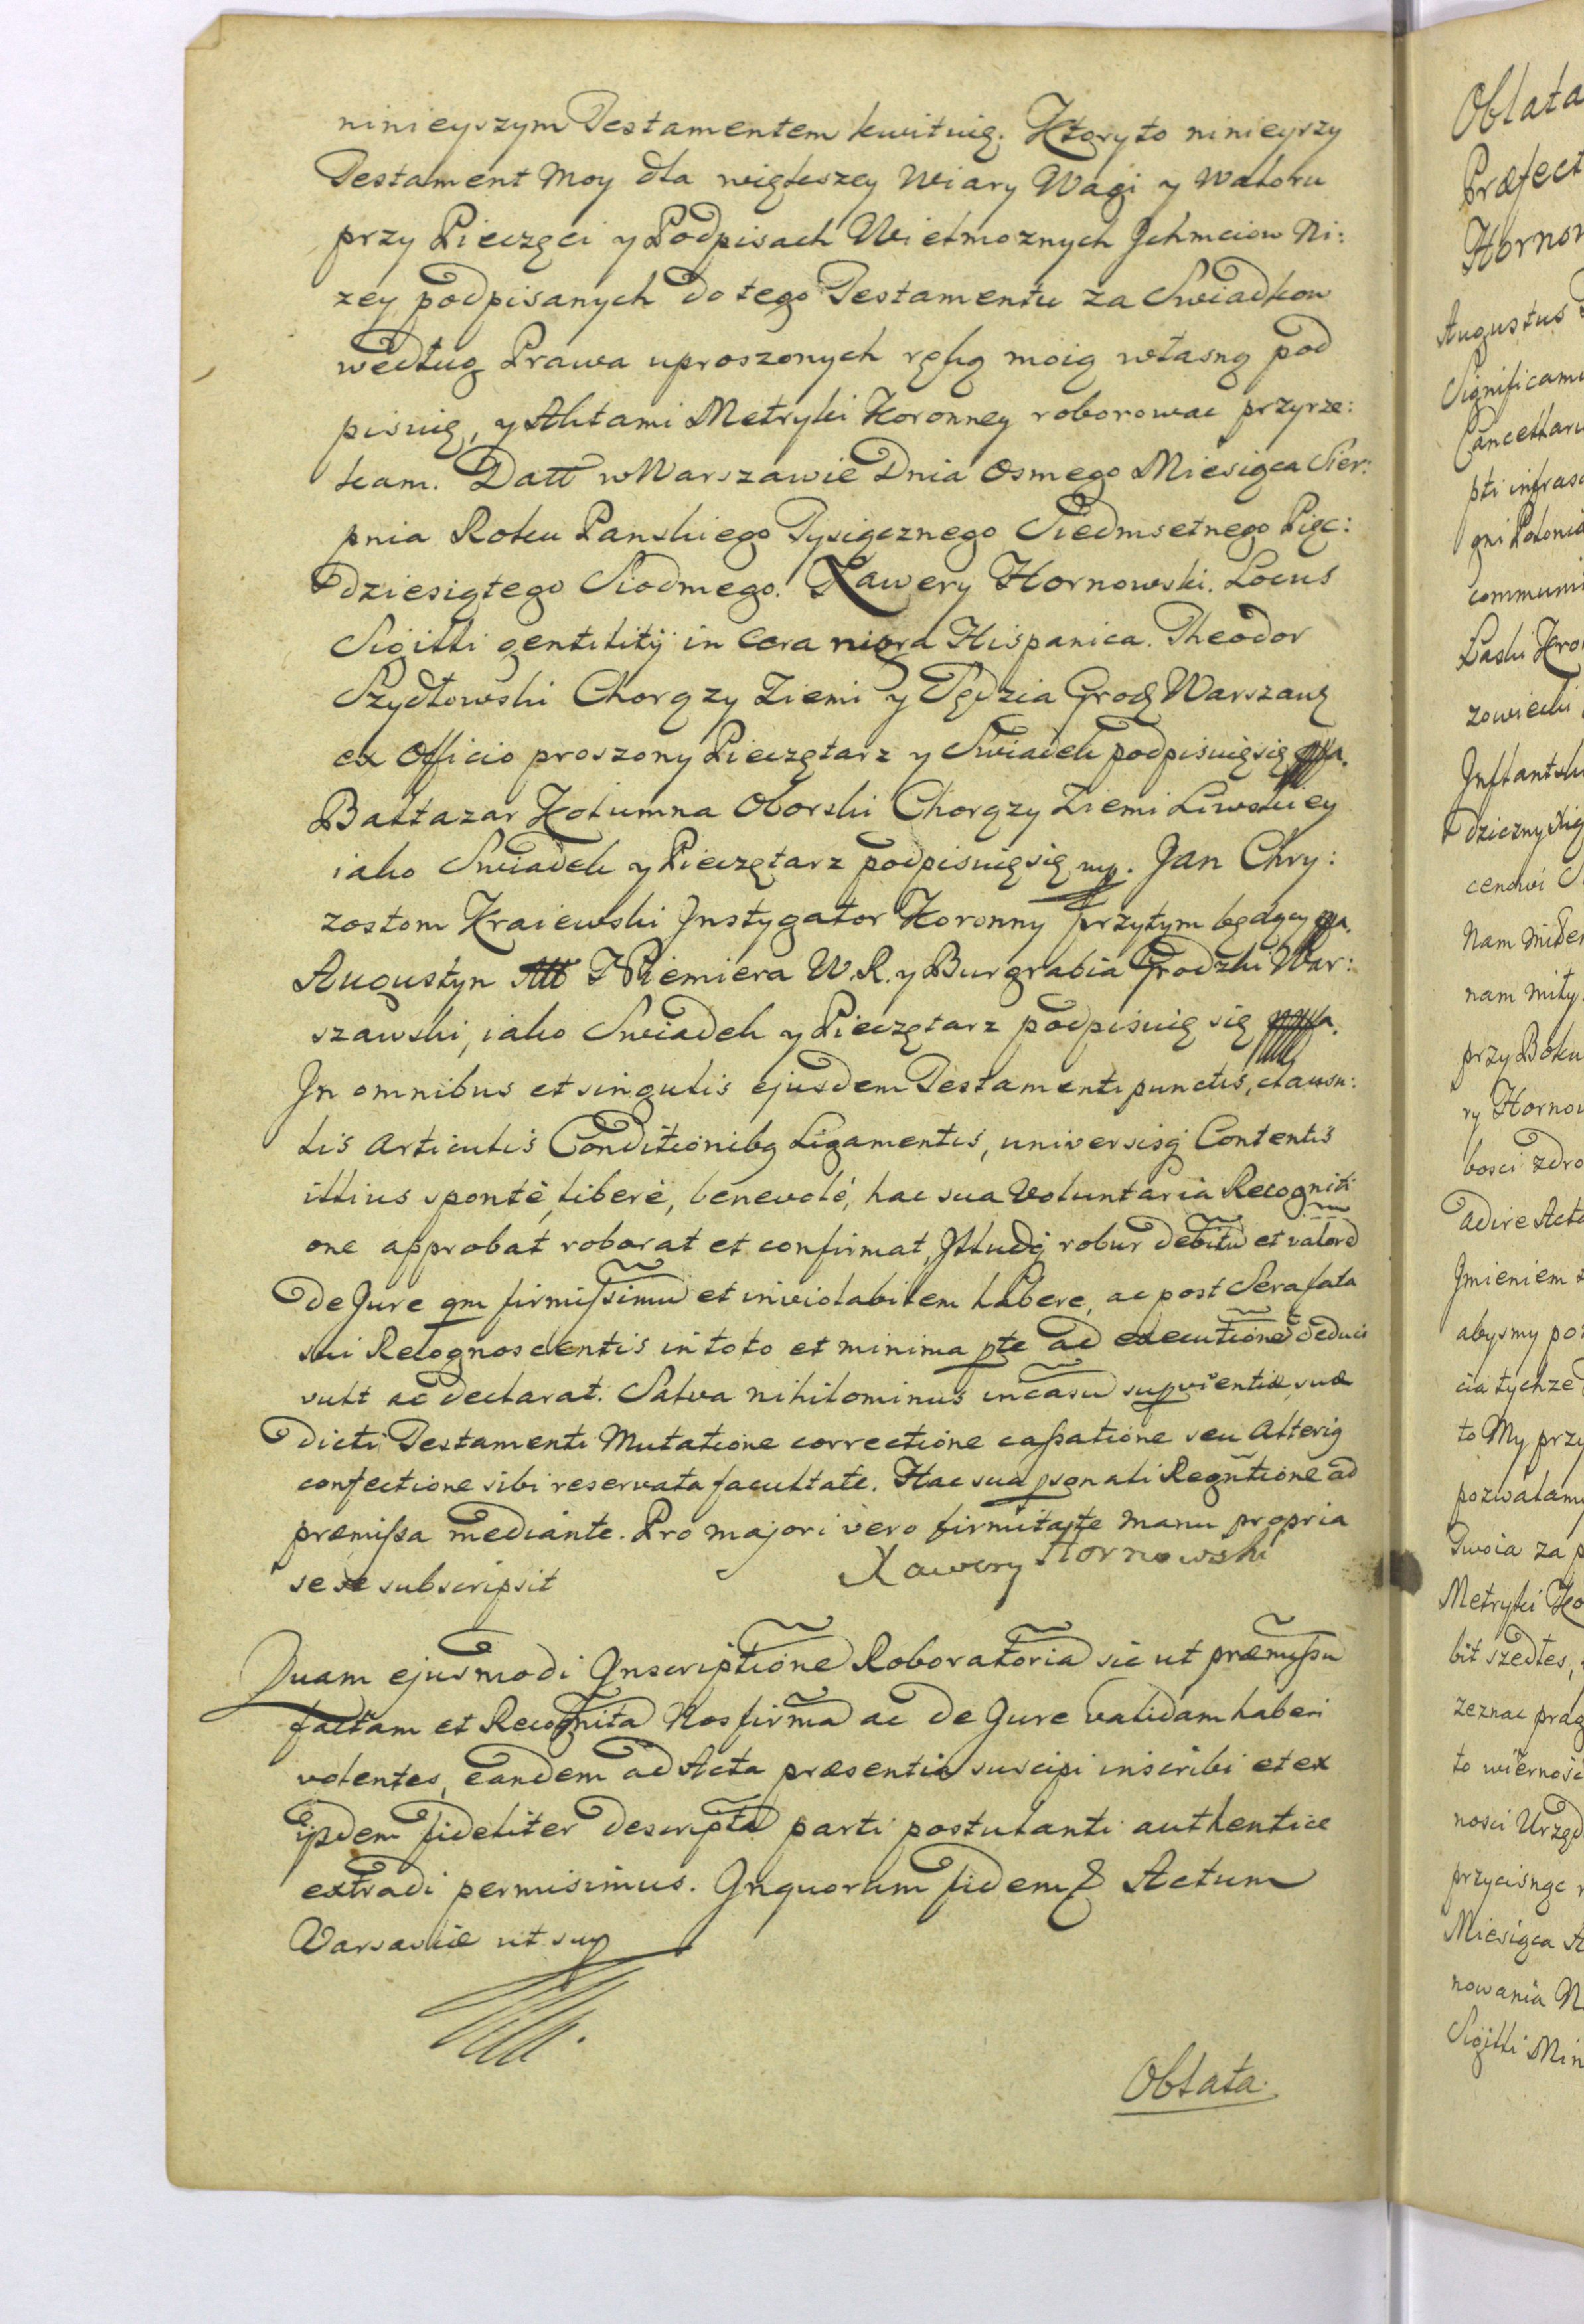 ninieyszym Testamentem kwituię. Ktory to ninieyszy
Testament Moy dla większey Wiary Wagi y Waloru
przy Pieczęci y Podpisach Wielmoznych Jchmciow Ni:
zey podpisanych do tego Testamentu za Swiadkow
według Prawa uproszonych ręką moią własną pod
pisuię, y Aktami Metryki Koronney roborowac przyrze:
kam. Datt w Warszawie Dnia Osmego Miesiąca Sier:
pnia Roku Panskiego Tysiącznego Siedmsetnego Pięc:
dziesiątego Siodmego. Xawery Hornowski. Locus
Sigilli gentilitij in Cera nigra Hispanica. Theodor
Szydłowski Chorązy Ziemi y Sędzia Grodz Warszawz
ex Officio proszony Pieczętarz y Swiadek podpisuię się mppa.
Baltazar Kolumna Oborski Chorązy Ziemi Liwskiey
iako Swiadek y Pieczętarz podpisuię się mp. Jan Chry:
zostom Kraiewski Jnstygator Koronny przytym będący mpa.
Augustyn J Niemiera W. R. y Burgrabia Grodzki War:
szawski, iako Swiadek y Pieczętarz podpisuię się mppa.
Jn omnibus et singulis ejusdem Testamenti punctis, clausu:
lis Articulis Conditionibq Ligamentis, universisq Contentis
illius spontè, liberè, benevolé, hac sua Voluntaria Recogniti
one approbat roborat et confirmat, Jlludq robur debitũ et valorẽ
de Jure qm firmissimũ et inviolabilem habere, ac post Sera fata
sui Recognoscentis in toto et minima pte ad executionẽ deduci
vult ac declarat. Salva nihilominus in casũ supvientiæ suæ
dicti Testamenti Mutatione correctione cassatione seu Alteriq
confectione sibi reservata facultate. Hac sua psonali Regnitione ad
præmissa mediante. Pro majori vero firmitate Manu propria
se se subscripsit Xawery Hornowski
Quam ejusmodi Jnscriptionẽ Roboratoriã sic ut præmissũ
factam et Recognitã Nos firmã ac de Jure validam haberi
volentes, eandem ad Acta præsentia suscipi inscribi et ex
ijsdem fideliter descriptã parti postulanti authentice
extradi permisimus. Jnquorum fidem &c Actum
Varsaviæ ut sup
Oblata.
Oblata
Præfect
Hornow
Augustus
Significamu
Cancellari
pti infrasc
gni Polonia
communi
Laski Kro
zowiecki
Jnflantski
dziczny Xią
cenowi S
Nam
nam miły
przy Boku
ry Hornow
bosci zdro
adire Acta
Jmieniem
abysmy po
cia tychze
to My przy
pozwalamy
Twoia za p
Metryki Ko
bit szedłes,
zeznac prag
to wiernosc
nosci Urzęd
przycisnąc
Miesiąca
nowania N
Sigilli Min